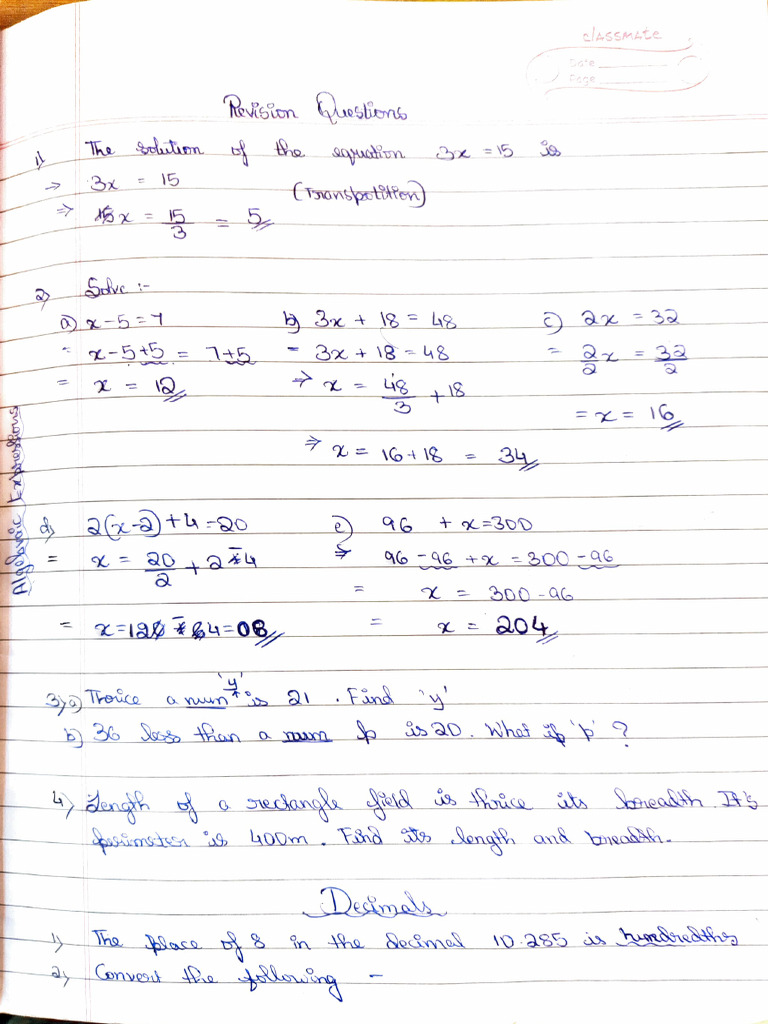 classmate
Date
Page
Revision Questions
1) The solution of the equation 3x = 15 is
→ 3x = 15 (Transpotition)
⇒ x = 15/3 = 5
2) Solve :-
a) x - 5 = 7 b) 3x + 18 = 48 c) 2x = 32
= x - 5 + 5 = 7 + 5 = 3x + 18 = 48 = 2/2 x = 32/2
= x = 12 ⇒ x = 48/3 + 18 = x = 16
⇒ x = 16 + 18 = 34
Algebraic Expressions
d) 2(x - 2) + 4 = 20 e) 96 + x = 300
= x = 20/2 + 2 - 4 ⇒ 96 - 96 + x = 300 - 96
= x = 300 - 96
= x = 12 - 4 = 08 = x = 204
3) a) Thrice a num 'y' is 21. Find 'y'
b) 36 less than a num p is 20. What is 'p' ?
4) Length of a rectangle field is thrice its breadth. It's
perimeter is 400m. Find its length and breadth.
Decimals
1) The place of 8 in the decimal 10.285 is hundredths
2) Convert the following -